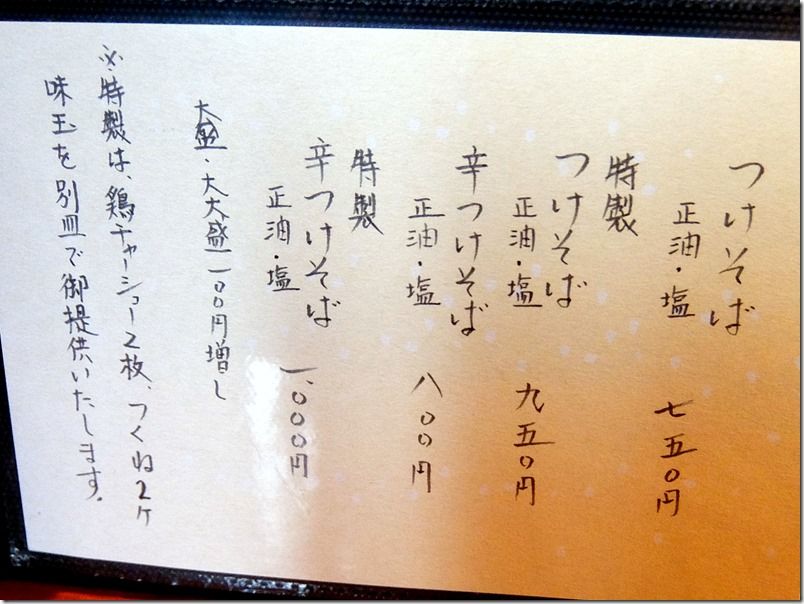 つけそば
正油・塩 七五0円
特製
つけそば
正油・塩 九五0円
辛つけそば
正油・塩 八00円
特製
辛つけそば
正油・塩 一、000円
大盛・大大盛 一00円増し
※特製は、鶏チャーシュー2枚、つくね2ケ
味玉を別皿で御提供いたします。